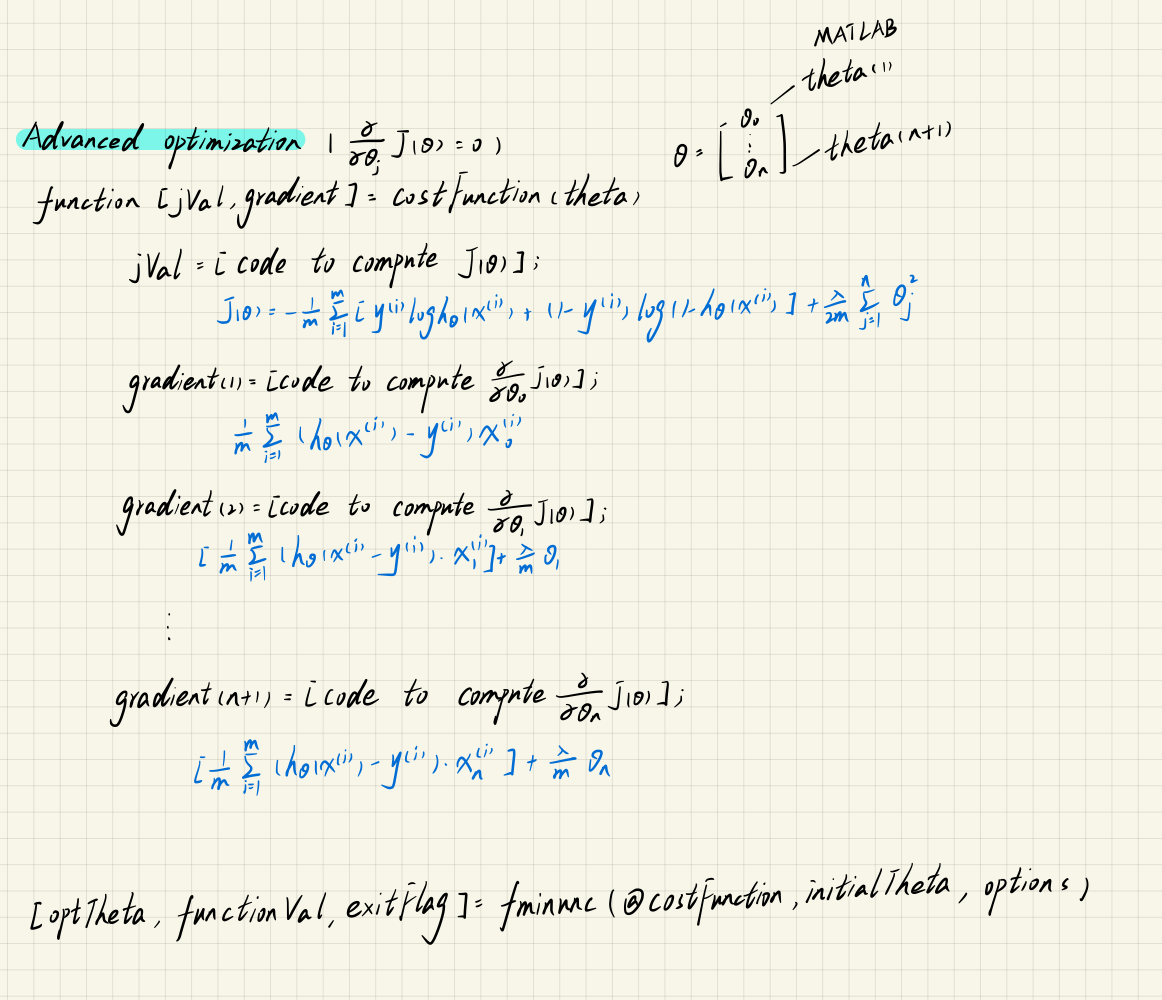 MATLAB
theta(1)
Advanced optimization ( ∂/∂θⱼ J(θ) = 0 )
θ = [ θ₀ ⋮ θₙ ] theta(n+1)
function [jVal, gradient] = costFunction(theta)
jVal = [code to compute J(θ)];
J(θ) = -1/m Σ_{i=1}^{m} [ y^{(i)} log h_θ(x^{(i)}) + (1-y^{(i)}) log(1-h_θ(x^{(i)}) ] + λ/2m Σ_{j=1}^{n} θ_j^2
gradient(1) = [code to compute ∂/∂θ₀ J(θ)];
1/m Σ_{i=1}^{m} (h_θ(x^{(i)}) - y^{(i)}) x_0^{(i)}
gradient(2) = [code to compute ∂/∂θ₁ J(θ)];
[ 1/m Σ_{i=1}^{m} (h_θ(x^{(i)} - y^{(i)}) · x_1^{(i)} ] + λ/m θ₁
⋮
gradient(n+1) = [code to compute ∂/∂θₙ J(θ)];
[ 1/m Σ_{i=1}^{m} (h_θ(x^{(i)}) - y^{(i)}) · x_n^{(i)} ] + λ/m θₙ
[optTheta, functionVal, exitFlag] = fminunc (@costFunction, initialTheta, options)